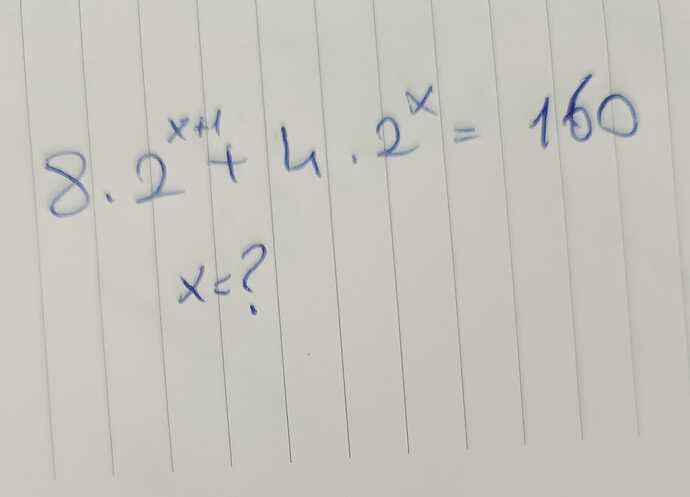 8 . 2^{x+1} + 4 . 2^x = 160
x = ?